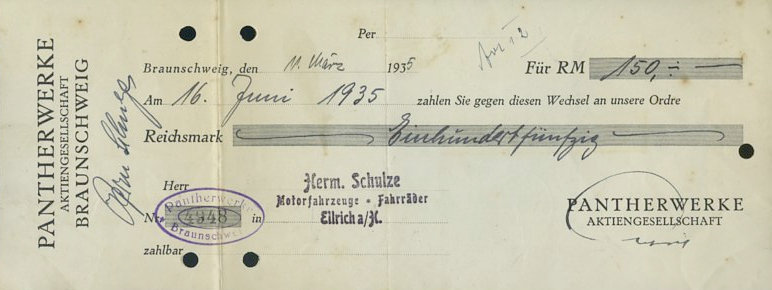 PANTHERWERKE
AKTIENGESELLSCHAFT
BRAUNSCHWEIG
Per
Braunschweig, den 11. März 1935
Für RM 150,-
Am 16. Juni 1935 zahlen Sie gegen diesen Wechsel an unsere Ordre
Reichsmark Einhundertfünfzig
Herr
Herm. Schulze
Motorfahrzeuge - Fahrräder
Ellrich a/H.
Nr. 4948 in
Pantherwerke
Braunschweig
zahlbar
PANTHERWERKE
AKTIENGESELLSCHAFT